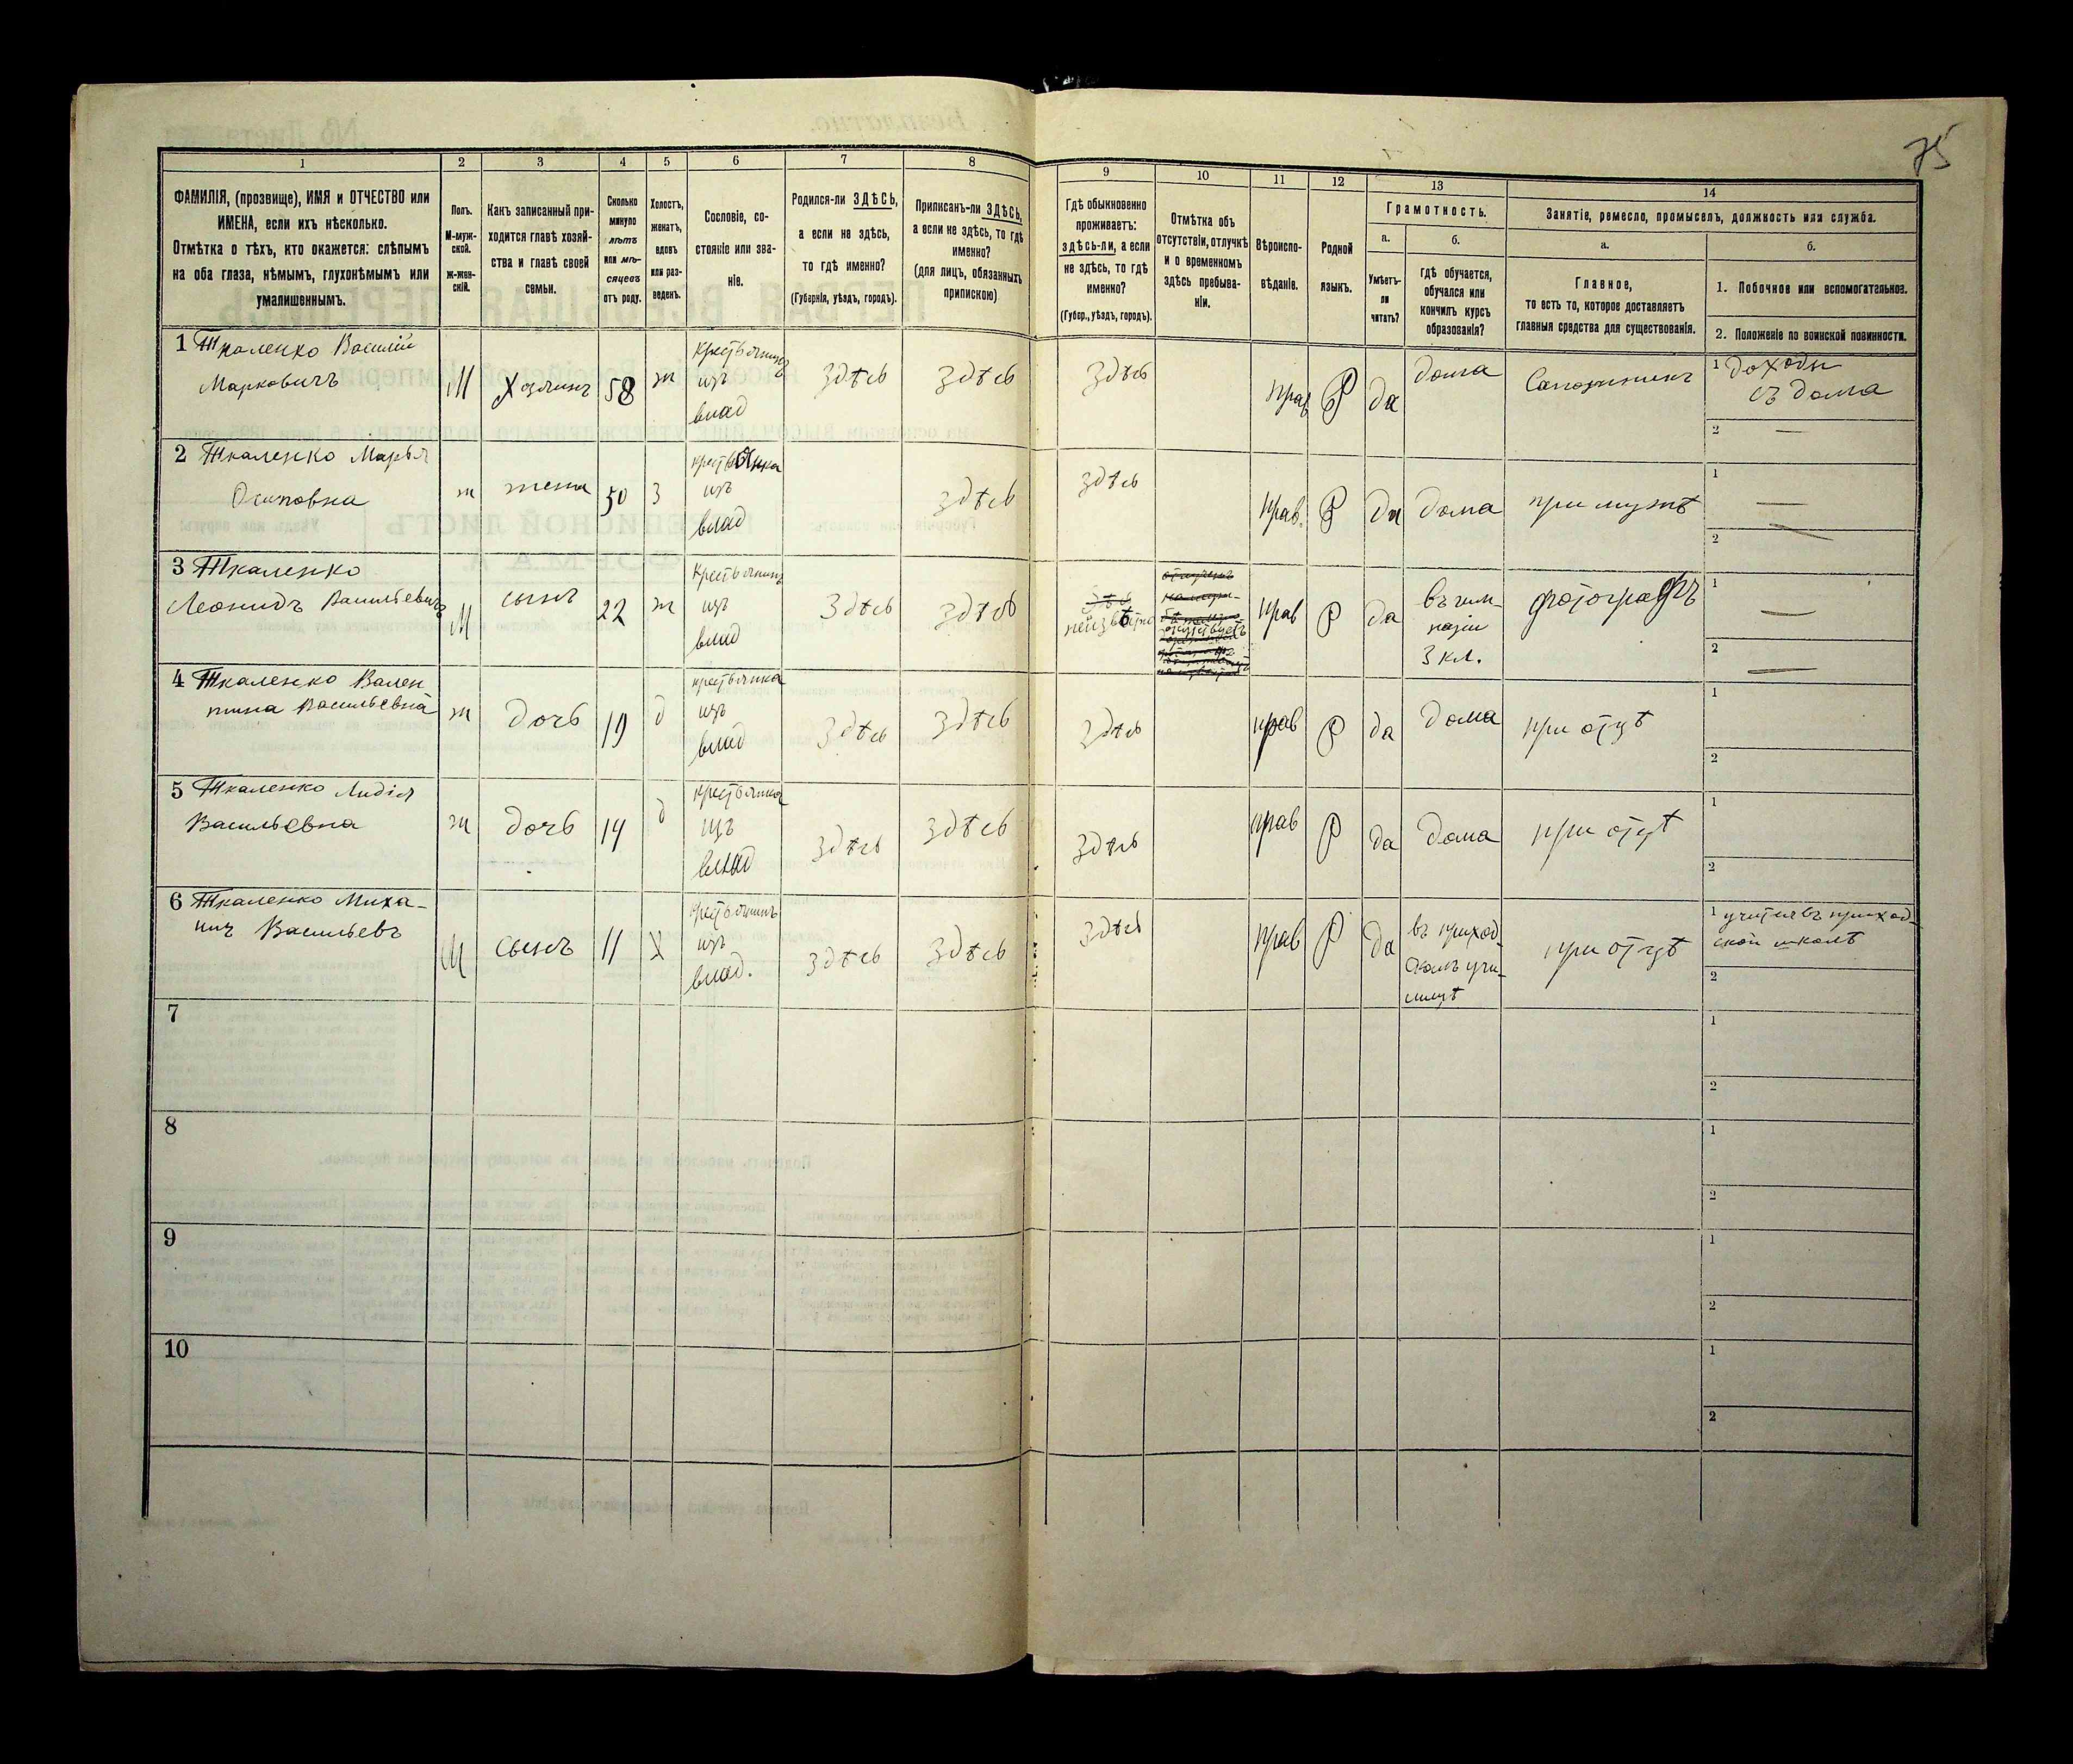 75
1
2
3
4
5
6
7
8
9
10
11
12
13
14
ФАМИЛІЯ, (прозвище), ИМЯ и ОТЧЕСТВО или
ИМЕНА, если ихъ нѣсколько.
Отмѣтка о тѣхъ, кто окажется: слѣпымъ
на оба глаза, нѣмымъ, глухонѣмымъ или
умалишеннымъ.
Полъ.
М-муж-
ской.
ж-жен-
скій.
Какъ записанный при-
ходится главѣ хозяй-
ства и главѣ своей
семьи.
Сколько
минуло
лѣтъ
или мѣ-
сяцевъ
отъ роду.
Холостъ,
женатъ,
вдовъ
или раз-
веденъ.
Сословіе, со-
стояніе или зва-
ніе.
Родился-ли ЗДѢСЬ,
а если не здѣсь,
то гдѣ именно?
(Губернія, уѣздъ, городъ).
Приписанъ-ли ЗДѢСЬ,
а если не здѣсь, то гдѣ
именно?
(для лицъ, обязанныхъ
припискою)
Гдѣ обыкновенно
проживаетъ:
здѣсь-ли, а если
не здѣсь, то гдѣ
именно?
(Губер., уѣздъ, городъ).
Отмѣтка объ
отсутствіи, отлучкѣ
и о временномъ
здѣсь пребыва-
ніи.
Вѣроиспо-
вѣданіе.
Родной
языкъ.
Грамотность.
а.
Умѣетъ-
ли
читать?
б.
Гдѣ обучается,
обучался или
кончилъ курсъ
образованія?
Занятіе, ремесло, промыселъ, должность или служба.
а.
Главное,
то есть то, которое доставляетъ
главныя средства для существованія.
б.
1. Побочное или вспомогательное.
2. Положеніе по воинской повинности.
1 Ткаленко Василій
Марковичъ
М
Хазяинъ
58
ж
крестьянинъ
изъ
влад
Здѣсь
Здѣсь
Здѣсь
Прав
Р
да
дома
Сапожникъ
1 доходы
съ дома
2 —
2 Ткаленко Марья
Осиповна
ж
жена
50
З
крестьянка
изъ
влад
Здѣсь
Здѣсь
Прав.
Р
да
дома
при мужѣ
1 —
2 —
3 Ткаленко
Леонидъ Васильевичъ
М
сынъ
22
ж
Крестьянинъ
изъ
влад
Здѣсь
Здѣсь
неизвѣстно
прав
Р
да
въ гим-
назіи
3 кл.
фотографъ
1 —
2 —
4 Ткаленко Вален
тина Васильевна
ж
дочь
19
д
крестьянка
изъ
влад
Здѣсь
Здѣсь
Здѣсь
прав
Р
да
дома
при отцѣ
1
2
5 Ткаленко Лидія
Васильевна
ж
дочь
14
д
крестьянка
изъ
влад
Здѣсь
Здѣсь
Здѣсь
прав
Р
да
дома
при отцѣ
1
2
6 Ткаленко Миха-
илъ Васильевъ
М
сынъ
11
Х
крестьянинъ
изъ
влад.
Здѣсь
Здѣсь
Здѣсь
прав
Р
да
въ приход-
скомъ учи-
лищѣ
при отцѣ
1 учится въ приход-
ской школѣ
2
7
1
2
8
1
2
9
1
2
10
1
2